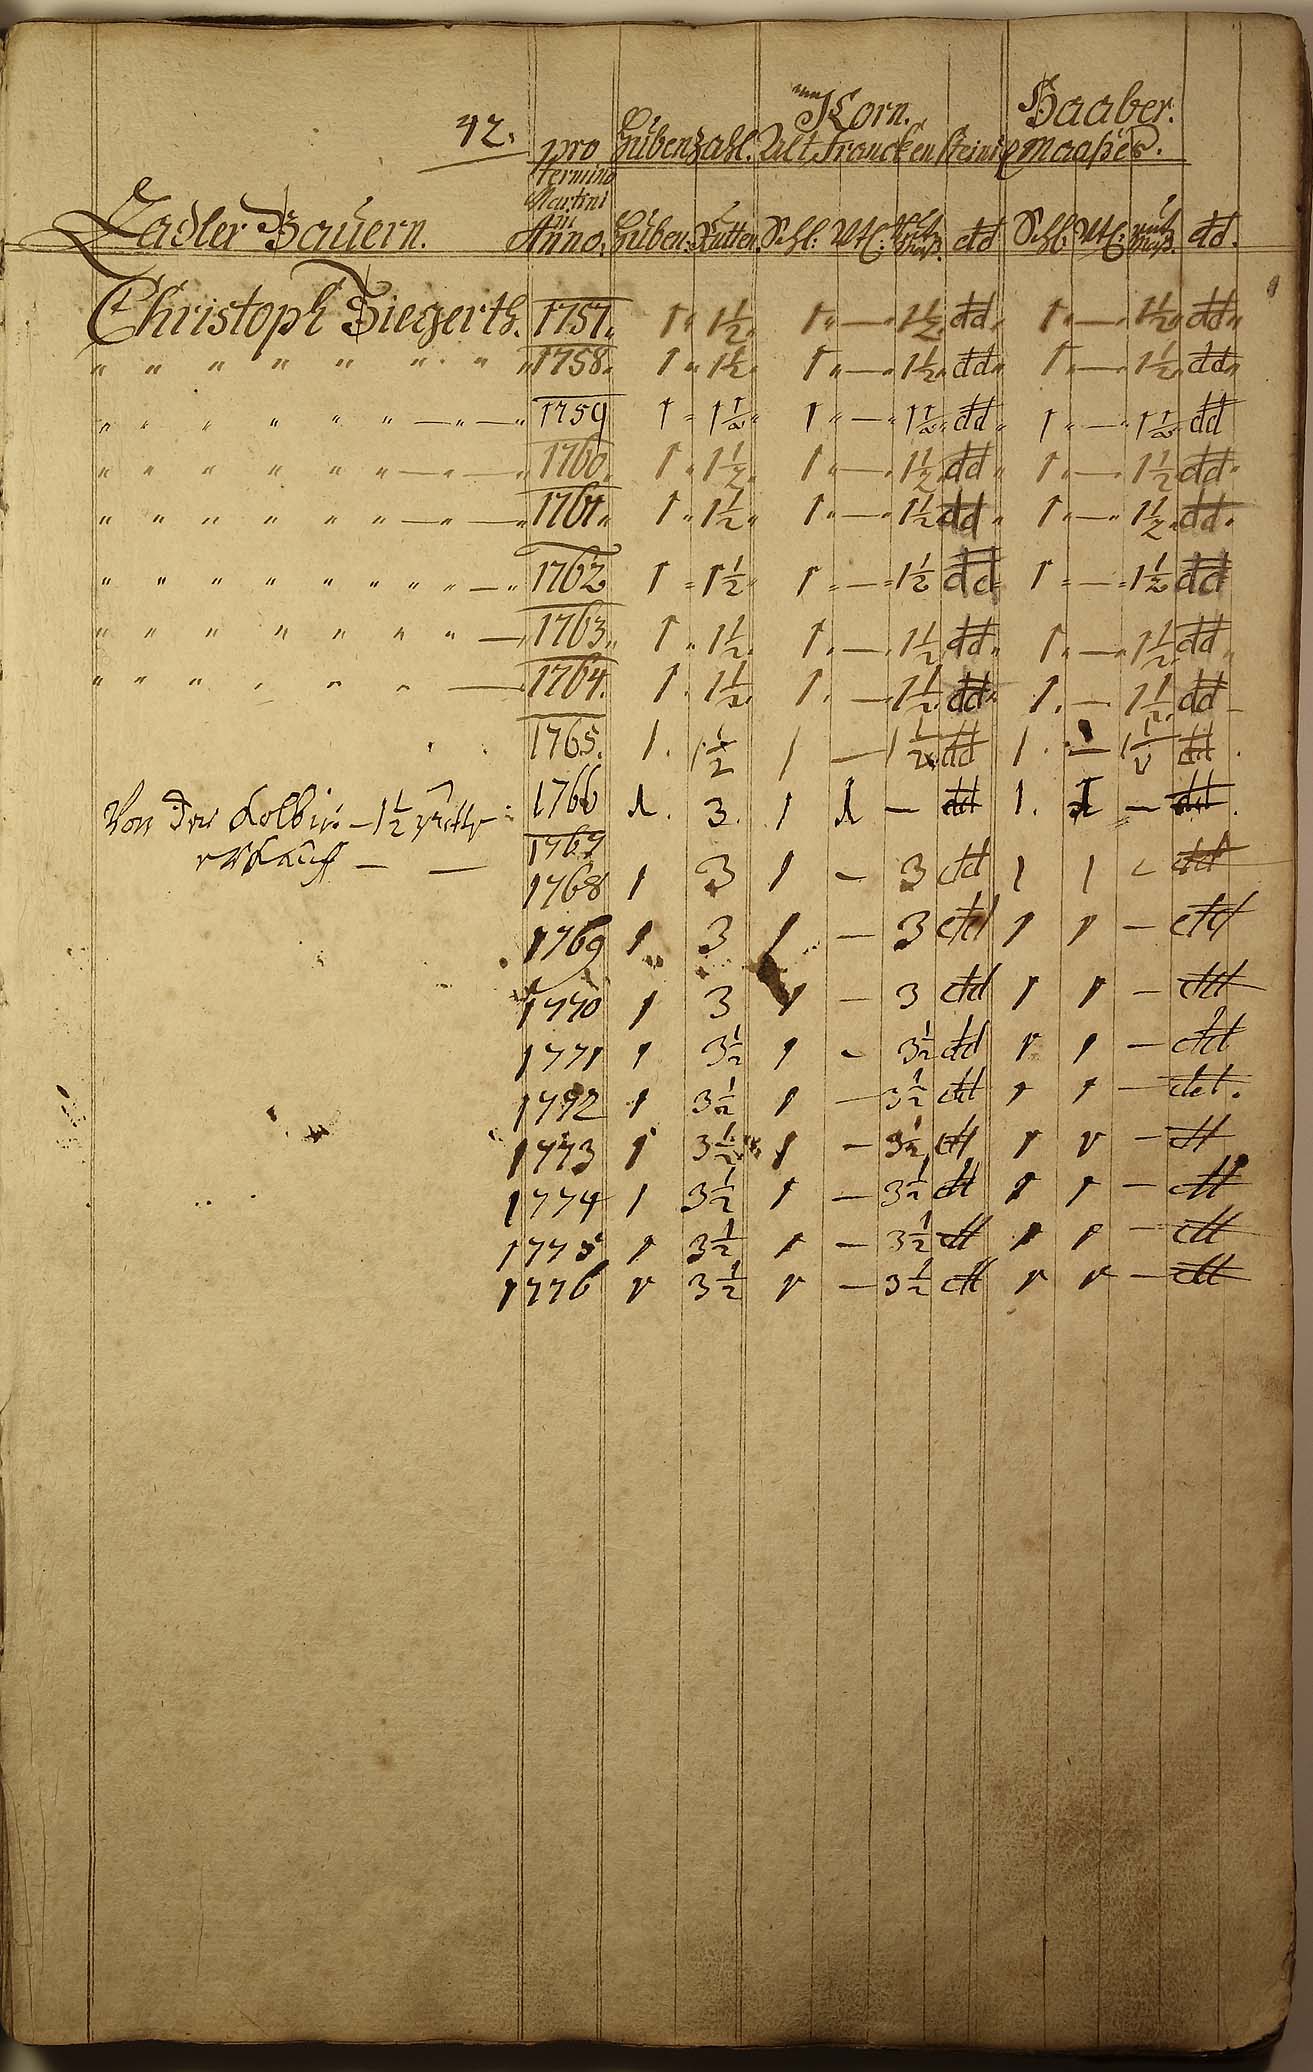 42.
Korn. Haaber.
pro Hubenzahl. Alt Franckensteinisch Maaßes.
Termino
Martini
in
Zadler Bauern. Anno. Huben: Rutten. Schl: Vtl: dd Schl: Vtl: dd.
Christoph Siegerth. 1757. 1 " 1½ 1 " — " 1½ dd 1 " — " 1½ dd
" " " " " " " " 1758. 1 " 1½ 1 " — " 1½ dd 1 " — " 1½ dd
" " " " " " — " — " 1759 1 " 1½ 1 " — " 1½ dd 1 " — " 1½ dd
" " " " " " — " — " 1760. 1 " 1½ 1 " — " 1½ dd 1 " — " 1½ dd
" " " " " " — " — " 1761 1 " 1½ 1 " — " 1½ dd 1 " — " 1½ dd
" " " " " " " " " — " 1762 1 " 1½ 1 " — " 1½ dd 1 " — " 1½ dd
" " " " " " " — 1763 1 " 1½ 1 " — " 1½ dd 1 " — " 1½ dd
" " " " " " — 1764. 1 . 1½ 1 . — 1½ dd 1 . — 1½ dd
1765. 1 . 1½ 1 — 1½ dd 1 . — 1½ dd
Von der 1½ 1766 1 . 3 . 1 1 — dd 1 . 1 — dd
erkauft — — 1767
1768 1 3 1 — 3 dd 1 1 — dd
1769 1 3 1 — 3 dd 1 1 — dd
1770 1 3 1 — 3 dd 1 1 — dd
1771 1 3½ 1 — 3½ dd 1 1 — dd
1772 1 3½ 1 — 3½ dd 1 1 — dd.
1773 1 3½ 1 — 3½ dd 1 1 — dd
1774 1 3½ 1 — 3½ dd 1 1 — dd
1775 1 3½ 1 — 3½ dd 1 1 — dd
1776 1 3½ 1 — 3½ dd 1 1 — dd